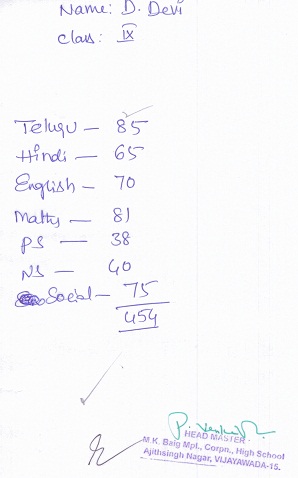 Name: D. Devi
class: IX
Telugu — 85
Hindi — 65
English — 70
Maths — 81
PS — 38
NS — 40
Social — 75
454
HEAD MASTER
M.K. Baig Mpl., Corpn., High School
Ajithsingh Nagar, VIJAYAWADA-15.